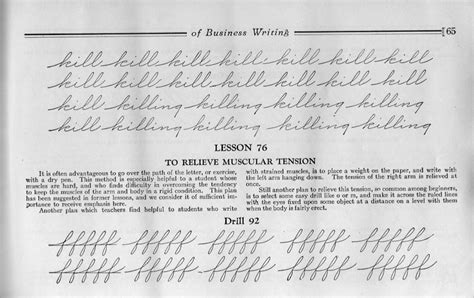 of Business Writing 65
kill kill kill kill kill kill kill kill
kill kill kill kill kill kill kill kill
kill killing killing killing killing
kill killing killing killing killing
LESSON 76
TO RELIEVE MUSCULAR TENSION
It is often advantageous to go over the path of the letter, or exercise,
with a dry pen. This method is especially helpful to a student whose
muscles are hard, and who finds difficulty in overcoming the tendency
to keep the muscles of the arm and body in a rigid condition. This plan
has been suggested in former lessons, and we consider it of sufficient im-
portance to receive emphasis here.
Another plan which teachers find helpful to students who write
with strained muscles, is to place a weight on the paper, and write with
the left arm hanging down. The tension of the right arm is relieved at
once.
Still another plan to relieve this tension, so common among beginners,
is to select some easy drill like o or m, and make it across the ruled lines
with the eyes fixed upon some object at a distance on a level with them
when the body is fairly erect.
Drill 92
fffff fffff fffff fffff fffff
fffff fffff fffff fffff fffff